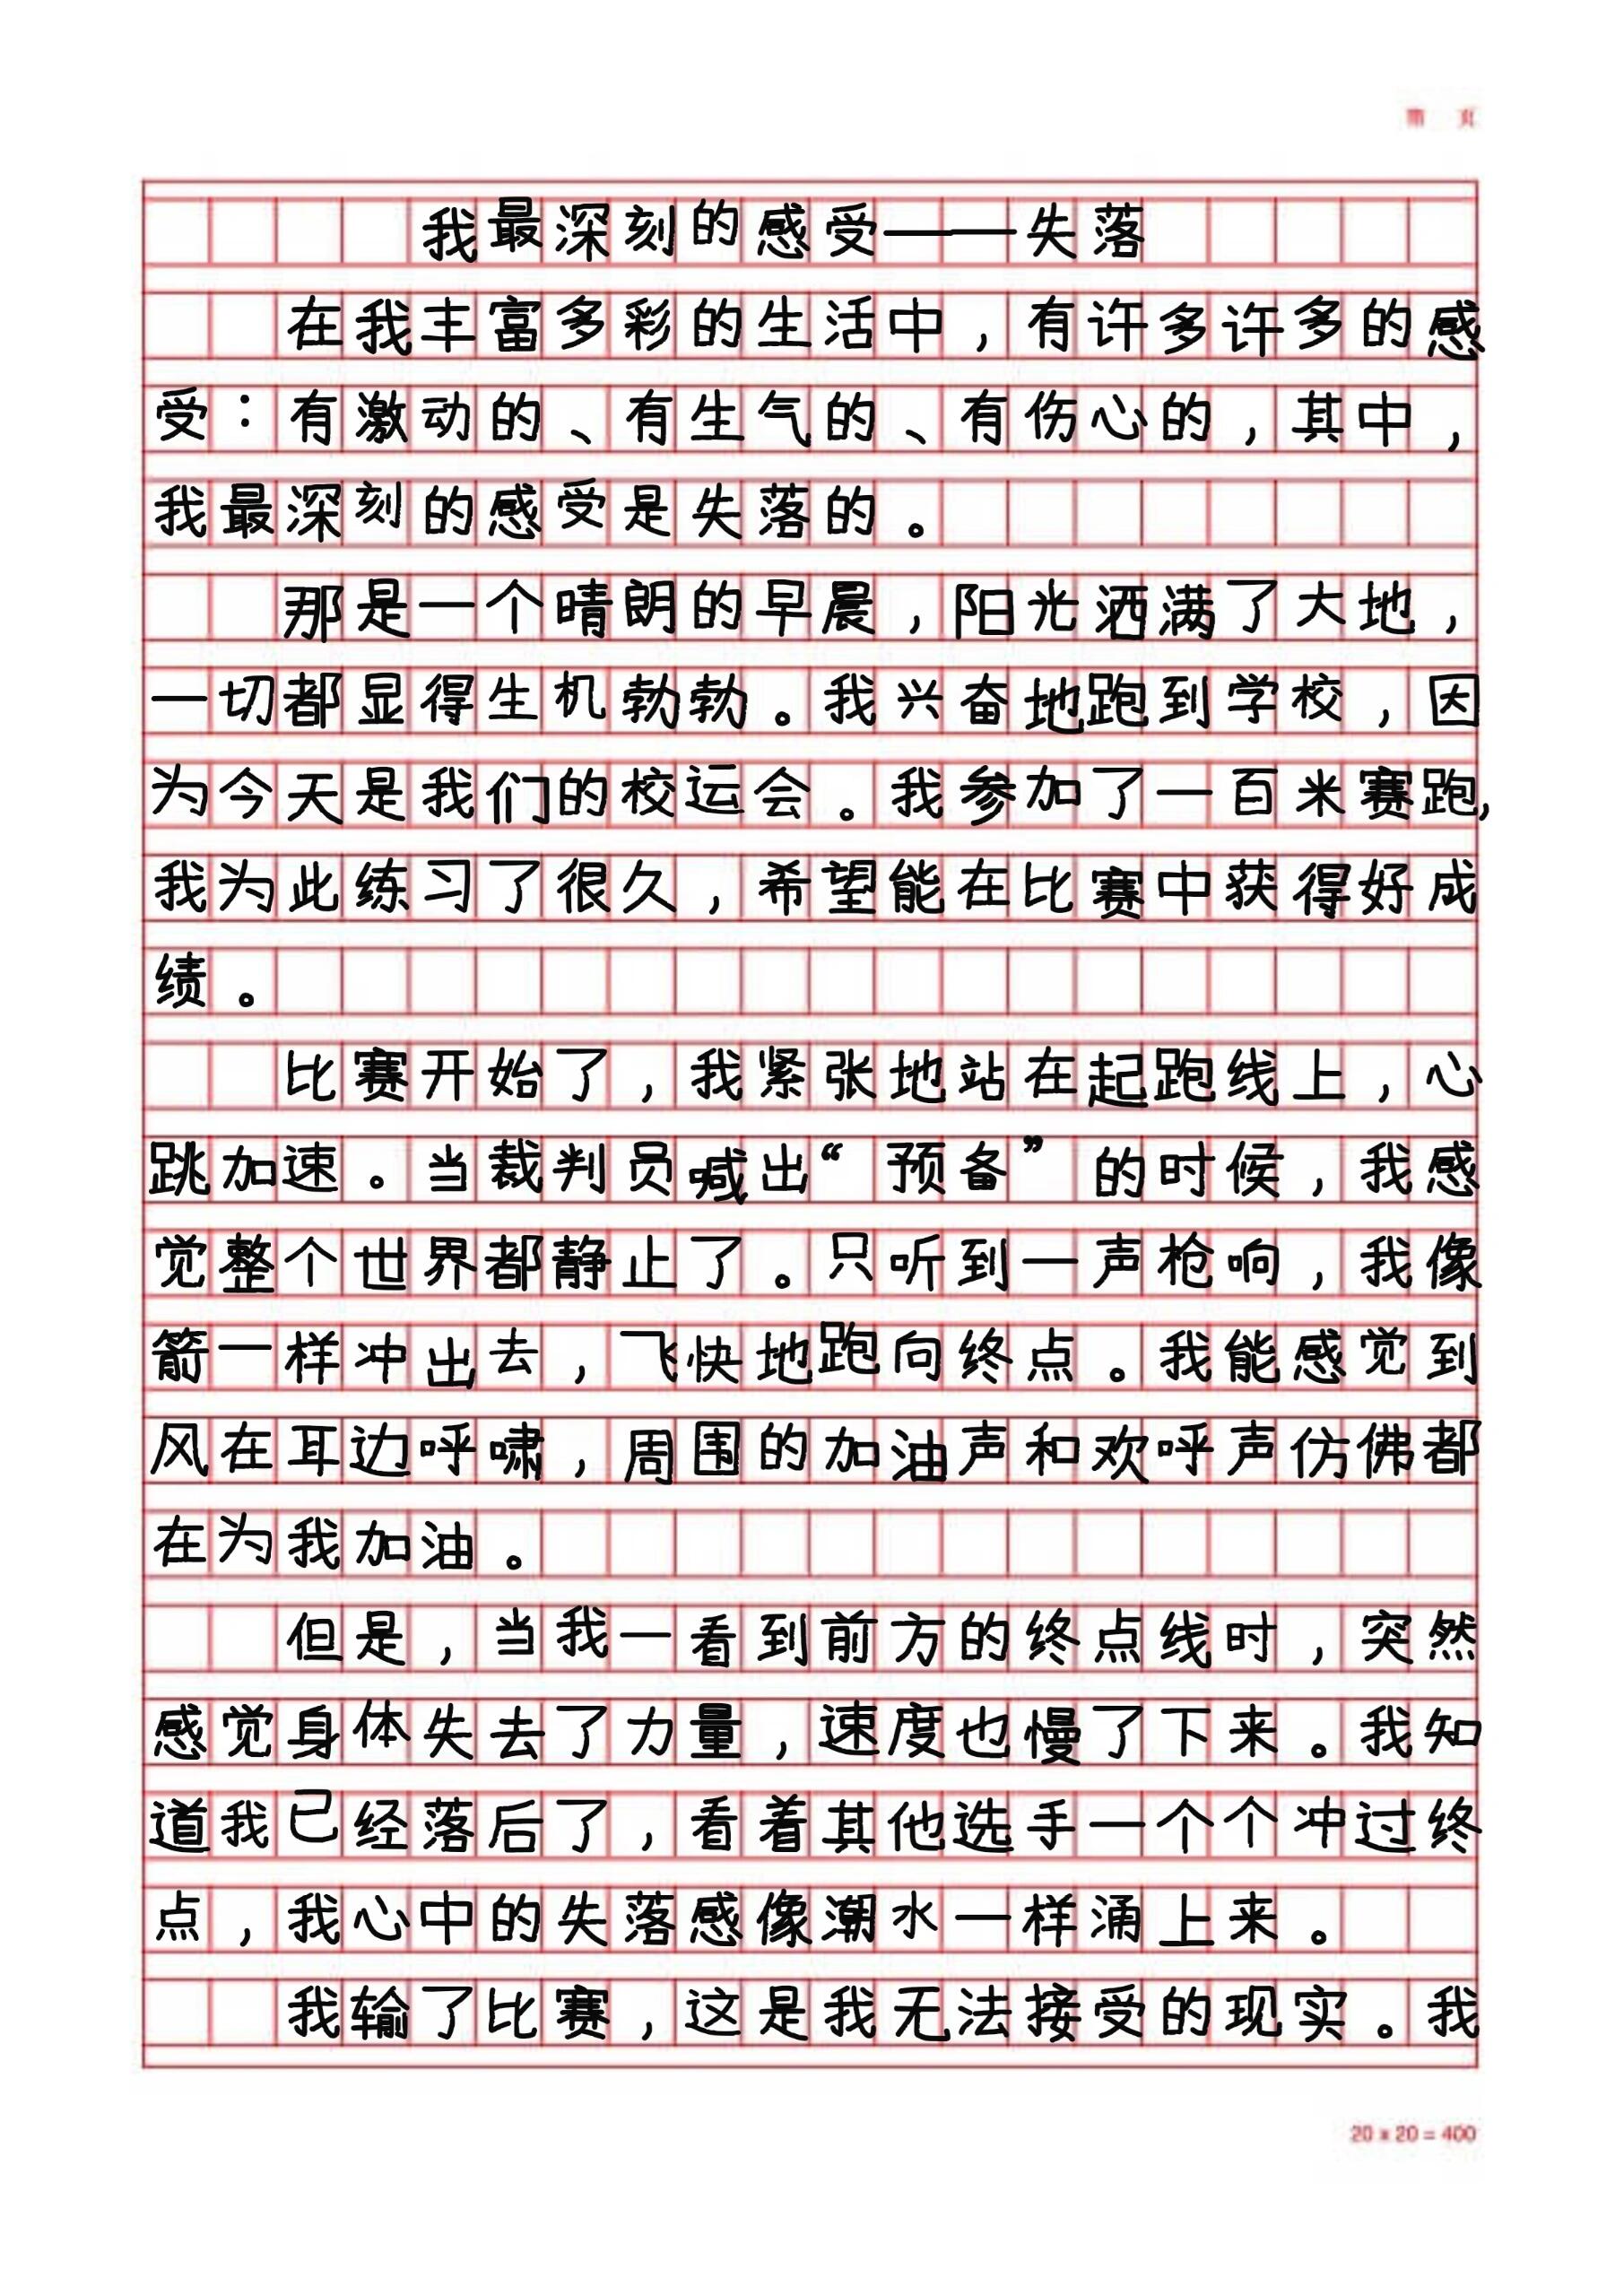 第 页
我最深刻的感受——失落
在我丰富多彩的生活中，有许多许多的感
受：有激动的、有生气的、有伤心的，其中，
我最深刻的感受是失落的。
那是一个晴朗的早晨，阳光洒满了大地，
一切都显得生机勃勃。我兴奋地跑到学校，因
为今天是我们的校运会。我参加了一百米赛跑，
我为此练习了很久，希望能在比赛中获得好成
绩。
比赛开始了，我紧张地站在起跑线上，心
跳加速。当裁判员喊出“预备”的时候，我感
觉整个世界都静止了。只听到一声枪响，我像
箭一样冲出去，飞快地跑向终点。我能感觉到
风在耳边呼啸，周围的加油声和欢呼声仿佛都
在为我加油。
但是，当我一看到前方的终点线时，突然
感觉身体失去了力量，速度也慢了下来。我知
道我已经落后了，看着其他选手一个个冲过终
点，我心中的失落感像潮水一样涌上来。
我输了比赛，这是我无法接受的现实。我
20 x 20 = 400